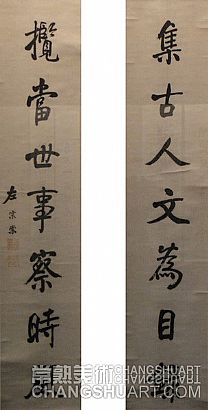 集古人文為目
攬當世事察時
左宗棠
常熟美術CHANGSHUART
CHANGSHUART.COM